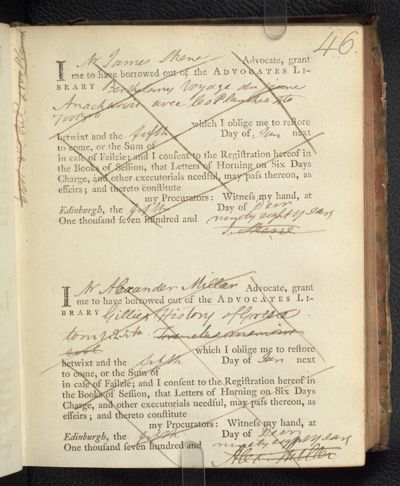 46.
I Mr James Skene Advocate, grant
me to have borrowed out of the ADVOCATES LI-
BRARY Barthelemy Voyage du jeune
Anacharsis avec les Planches 4to
7 vols which I oblige me to reſtore
betwixt and the fifth Day of Jan next
to come, or the Sum of
in caſe of Failzie; and I conſent to the Regiſtration hereof in
the Books of Seſſion, that Letters of Horning on Six Days
Charge, and other executorials needful, may paſs thereon, as
effeirs; and thereto conſtitute
my Procurators: Witneſs my hand, at
Edinburgh, the fifth Day of Decr
One thouſand ſeven hundred and ninety eight years
J. Skene
I Mr Alexander Millar Advocate, grant
me to have borrowed out of the ADVOCATES LI-
BRARY Gillies History of Greece
which I oblige me to reſtore
betwixt and the fifth Day of Jan next
to come, or the Sum of
in caſe of Failzie; and I conſent to the Regiſtration hereof in
the Books of Seſſion, that Letters of Horning on Six Days
Charge, and other executorials needful, may paſs thereon, as
effeirs; and thereto conſtitute
my Procurators: Witneſs my hand, at
Edinburgh, the fifth Day of Decr
One thouſand ſeven hundred and ninety eight years
Alex. Millar